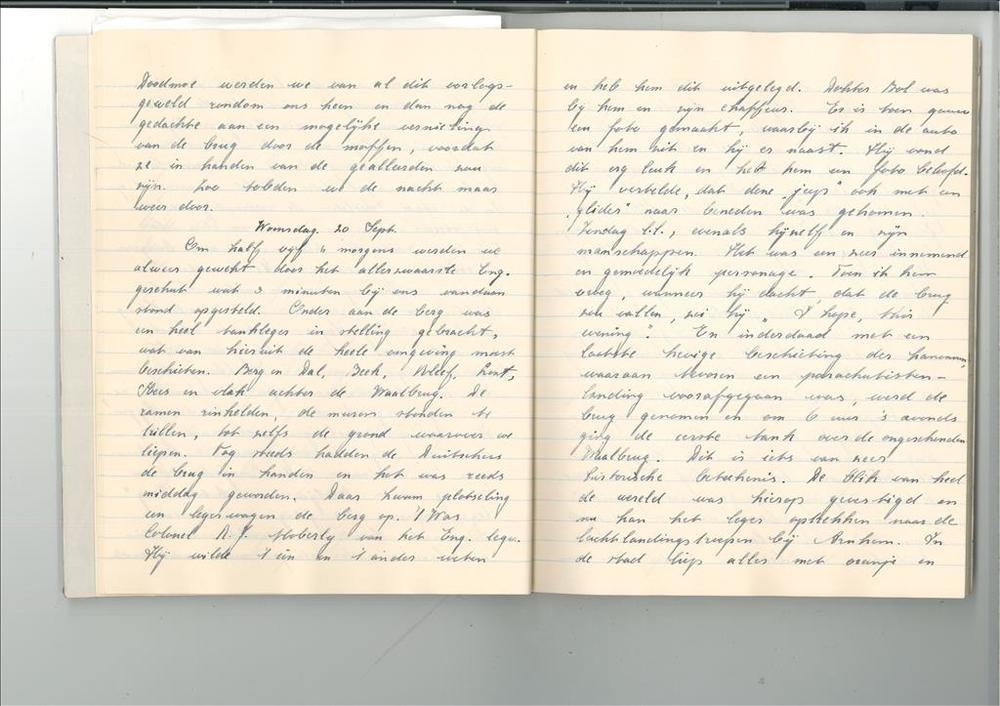 Doodmoe werden we van al dit oorlogs-
geweld rondom ons heen en dan nog de
gedachte aan een mogelijke vernieling
van de brug door de moffen, voordat
ze in handen van de geallieerden zou
zijn. Zoo tobden we de nacht maar
weer door.
Woensdag. 20 Sept.
Om half vijf 's morgens werden we
alweer gewekt door het allerzwaarste Eng.
geschut wat 3 minuten bij ons vandaan
stond opgesteld. Onder aan de berg was
een heel tankleger in stelling gebracht,
wat van hieruit de heele omgeving moest
beschieten. Berg en Dal, Beek, Kleef, Lent,
Elees en vlak achter de Waalbrug. De
ramen rinkelden, de muren stonden te
trillen, tot zelfs de grond waarover we
liepen. Nog steeds hadden de Duitschers
de brug in handen en het was reeds
middag geworden. Daar kwam plotseling
een legerwagen de berg op. 't Was
Colonel R.J. Moberly van het Eng. leger.
Hij wilde 't een en 't ander weten
en heb hem dit uitgelegd. Dokter Bol was
bij hem en zijn chauffeur. Er is toen gauw
een foto gemaakt, waarbij ik in de auto
van hem zit en hij er naast. Hij vond
dit erg leuk en heb hem een foto beloofd.
Hij vertelde, dat deze "jeep" ook met een
"glider" naar beneden was gekomen.
Zondag l.l., evenals hijzelf en zijn
manschappen. Het was een zeer innemend
en gemoedelijk personage. Toen ik hem
vroeg, wanneer hij dacht, dat de brug
zou vallen, zei hij "I hope, this
evening". En inderdaad met een
laatste hevige beschieting der kanonnen,
waaraan tevoren een parachutisten-
landing voorafgegaan was, werd de
brug genomen en om 6 uur 's avonds
ging de eerste tank over de ongeschonden
Waalbrug. Dit is iets van zeer
historische beteekenis. De blik van heel
de wereld was hierop gevestigd en
nu kan het leger optrekken naar de
luchtlandingstroepen bij Arnhem. In
de stad liep alles met oranje en